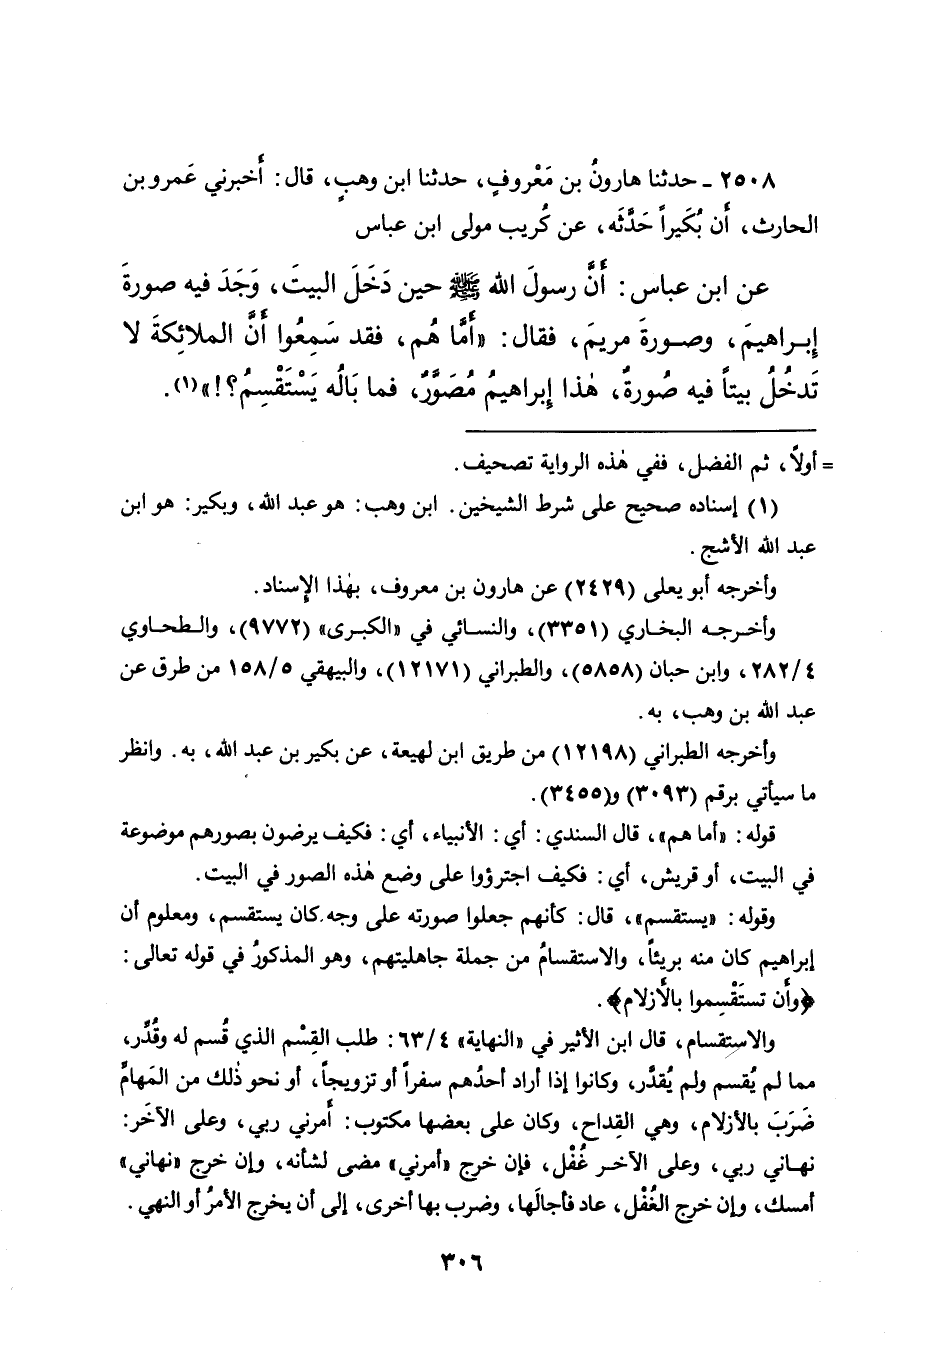 ٢٥٠٨ ـ حدثنا هارونُ بن مَعْروفٍ، حدثنا ابن وهبٍ، قال: أَخبرني عَمرو بن
الحارث، أَن بُكَيراً حَدَّثَه، عن كُريب مولى ابن عباس
عن ابن عباس: أَنَّ رسولَ الله ﷺ حين دَخَلَ البيتَ، وَجَدَ فيه صورةَ
إِبـراهيمَ، وصـورةَ مريمَ، فقال: «أَمَّا هُم، فقد سَمِعُوا أَنَّ الملائكةَ لا
تَدخُلُ بيتاً فيه صُورةٌ، هٰذا إِبراهيمُ مُصَوَّرٌ، فما بَالُه يَسْتَقْسِمُ؟!»(١).
= أولاً، ثم الفضل، ففي هٰذه الرواية تصحيف.
(١) إسناده صحيح على شرط الشيخين. ابن وهب: هو عبد الله، وبكير: هو ابن
عبد الله الأشج.
وأخرجه أبو يعلى (٢٤٢٩) عن هارون بن معروف، بهٰذا الإسناد.
وأخـرجـه البخاري (٣٣٥١)، والنسائي في «الكبرى» (٩٧٧٢)، والـطحـاوي
٢٨٢/٤، وابن حبان (٥٨٥٨)، والطبراني (١٢١٧١)، والبيهقي ١٥٨/٥ من طرق عن
عبد الله بن وهب، به.
وأخرجه الطبراني (١٢١٩٨) من طريق ابن لهيعة، عن بكير بن عبد الله، به. وانظر
ما سيأتي برقم (٣٠٩٣) و(٣٤٥٥).
قوله: «أما هم»، قال السندي: أي: الأنبياء، أي: فكيف يرضون بصورهم موضوعة
في البيت، أو قريش، أي: فكيف اجترؤوا على وضع هٰذه الصور في البيت.
وقوله: «يستقسم»، قال: كأنهم جعلوا صورته على وجه كان يستقسم، ومعلوم أن
إبراهيم كان منه بريئاً، والاستقسامُ من جملة جاهليتهم، وهو المذكورُ في قوله تعالى:
﴿وأَن تستَقْسِموا بالأَزلام﴾.
والاستقسام، قال ابن الأثير في «النهاية» ٦٣/٤: طلب القِسْم الذي قُسم له وقُدِّر،
مما لم يُقسم ولم يُقدَّر، وكانوا إذا أراد أحدُهم سفراً أو تزويجاً، أو نحو ذٰلك من المَهامِّ
ضَرَبَ بالأزلام، وهي القِداح، وكان على بعضها مكتوب: أَمرني ربي، وعلى الآخَر:
نهـاني ربي، وعلى الآخـر غُفْل، فإن خرج «أمرني» مضى لشأنه، وإن خرج «نهاني»
أمسك، وإن خرج الغُفْل، عاد فأجالَها، وضرب بها أخرى، إلى أن يخرج الأمرُ أو النهي.
٣٠٦